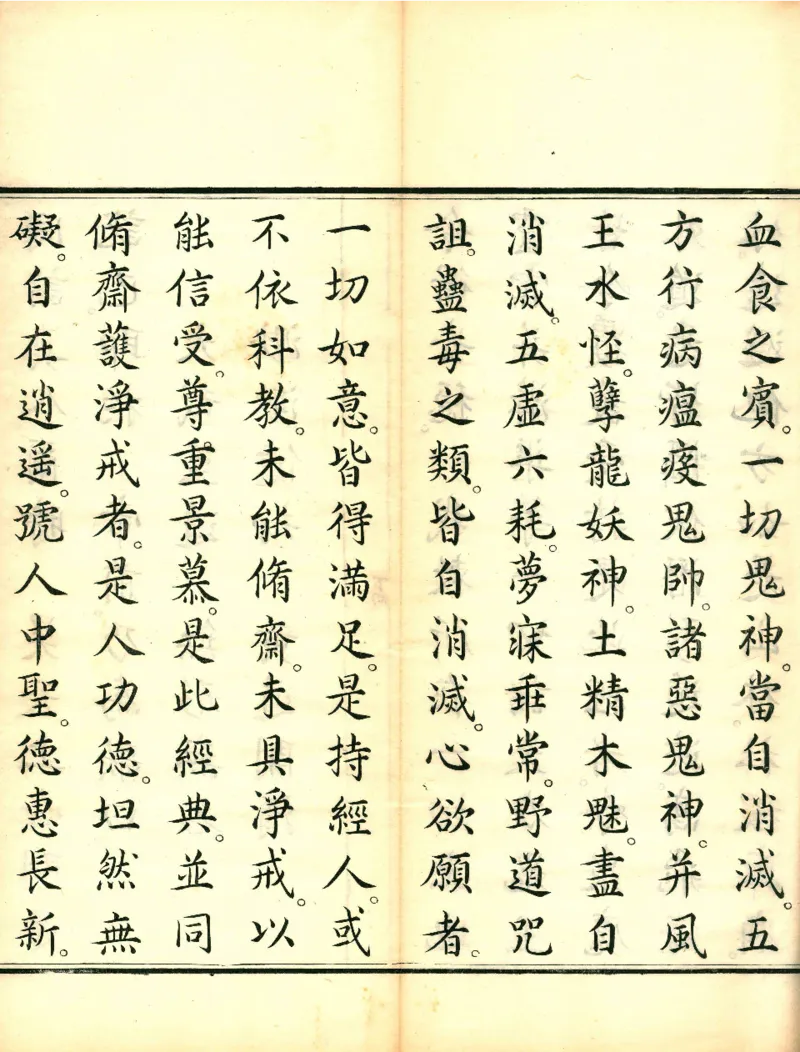 血食之賓。一切鬼神。當自消滅。五
方行病瘟疫鬼帥。諸惡鬼神。并風
王水怪。孽龍妖神。土精木魅。盡自
消滅。五虛六耗。夢寐乖常。野道咒
詛。蠱毒之類。皆自消滅。心欲願者。
一切如意。皆得滿足。是持經人。或
不依科教。未能脩齋。未具淨戒。以
能信受。尊重景慕。是此經典。並同
脩齋護淨戒者。是人功德。坦然無
礙。自在逍遥。號人中聖。德惠長新。